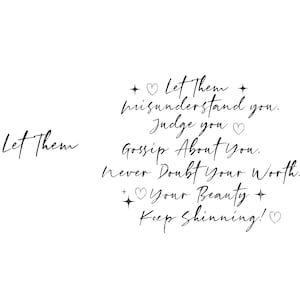 Let Them
Let Them
Misunderstand you.
Judge you
Gossip About You.
Never Doubt Your Worth.
Your Beauty
Keep Shinning!